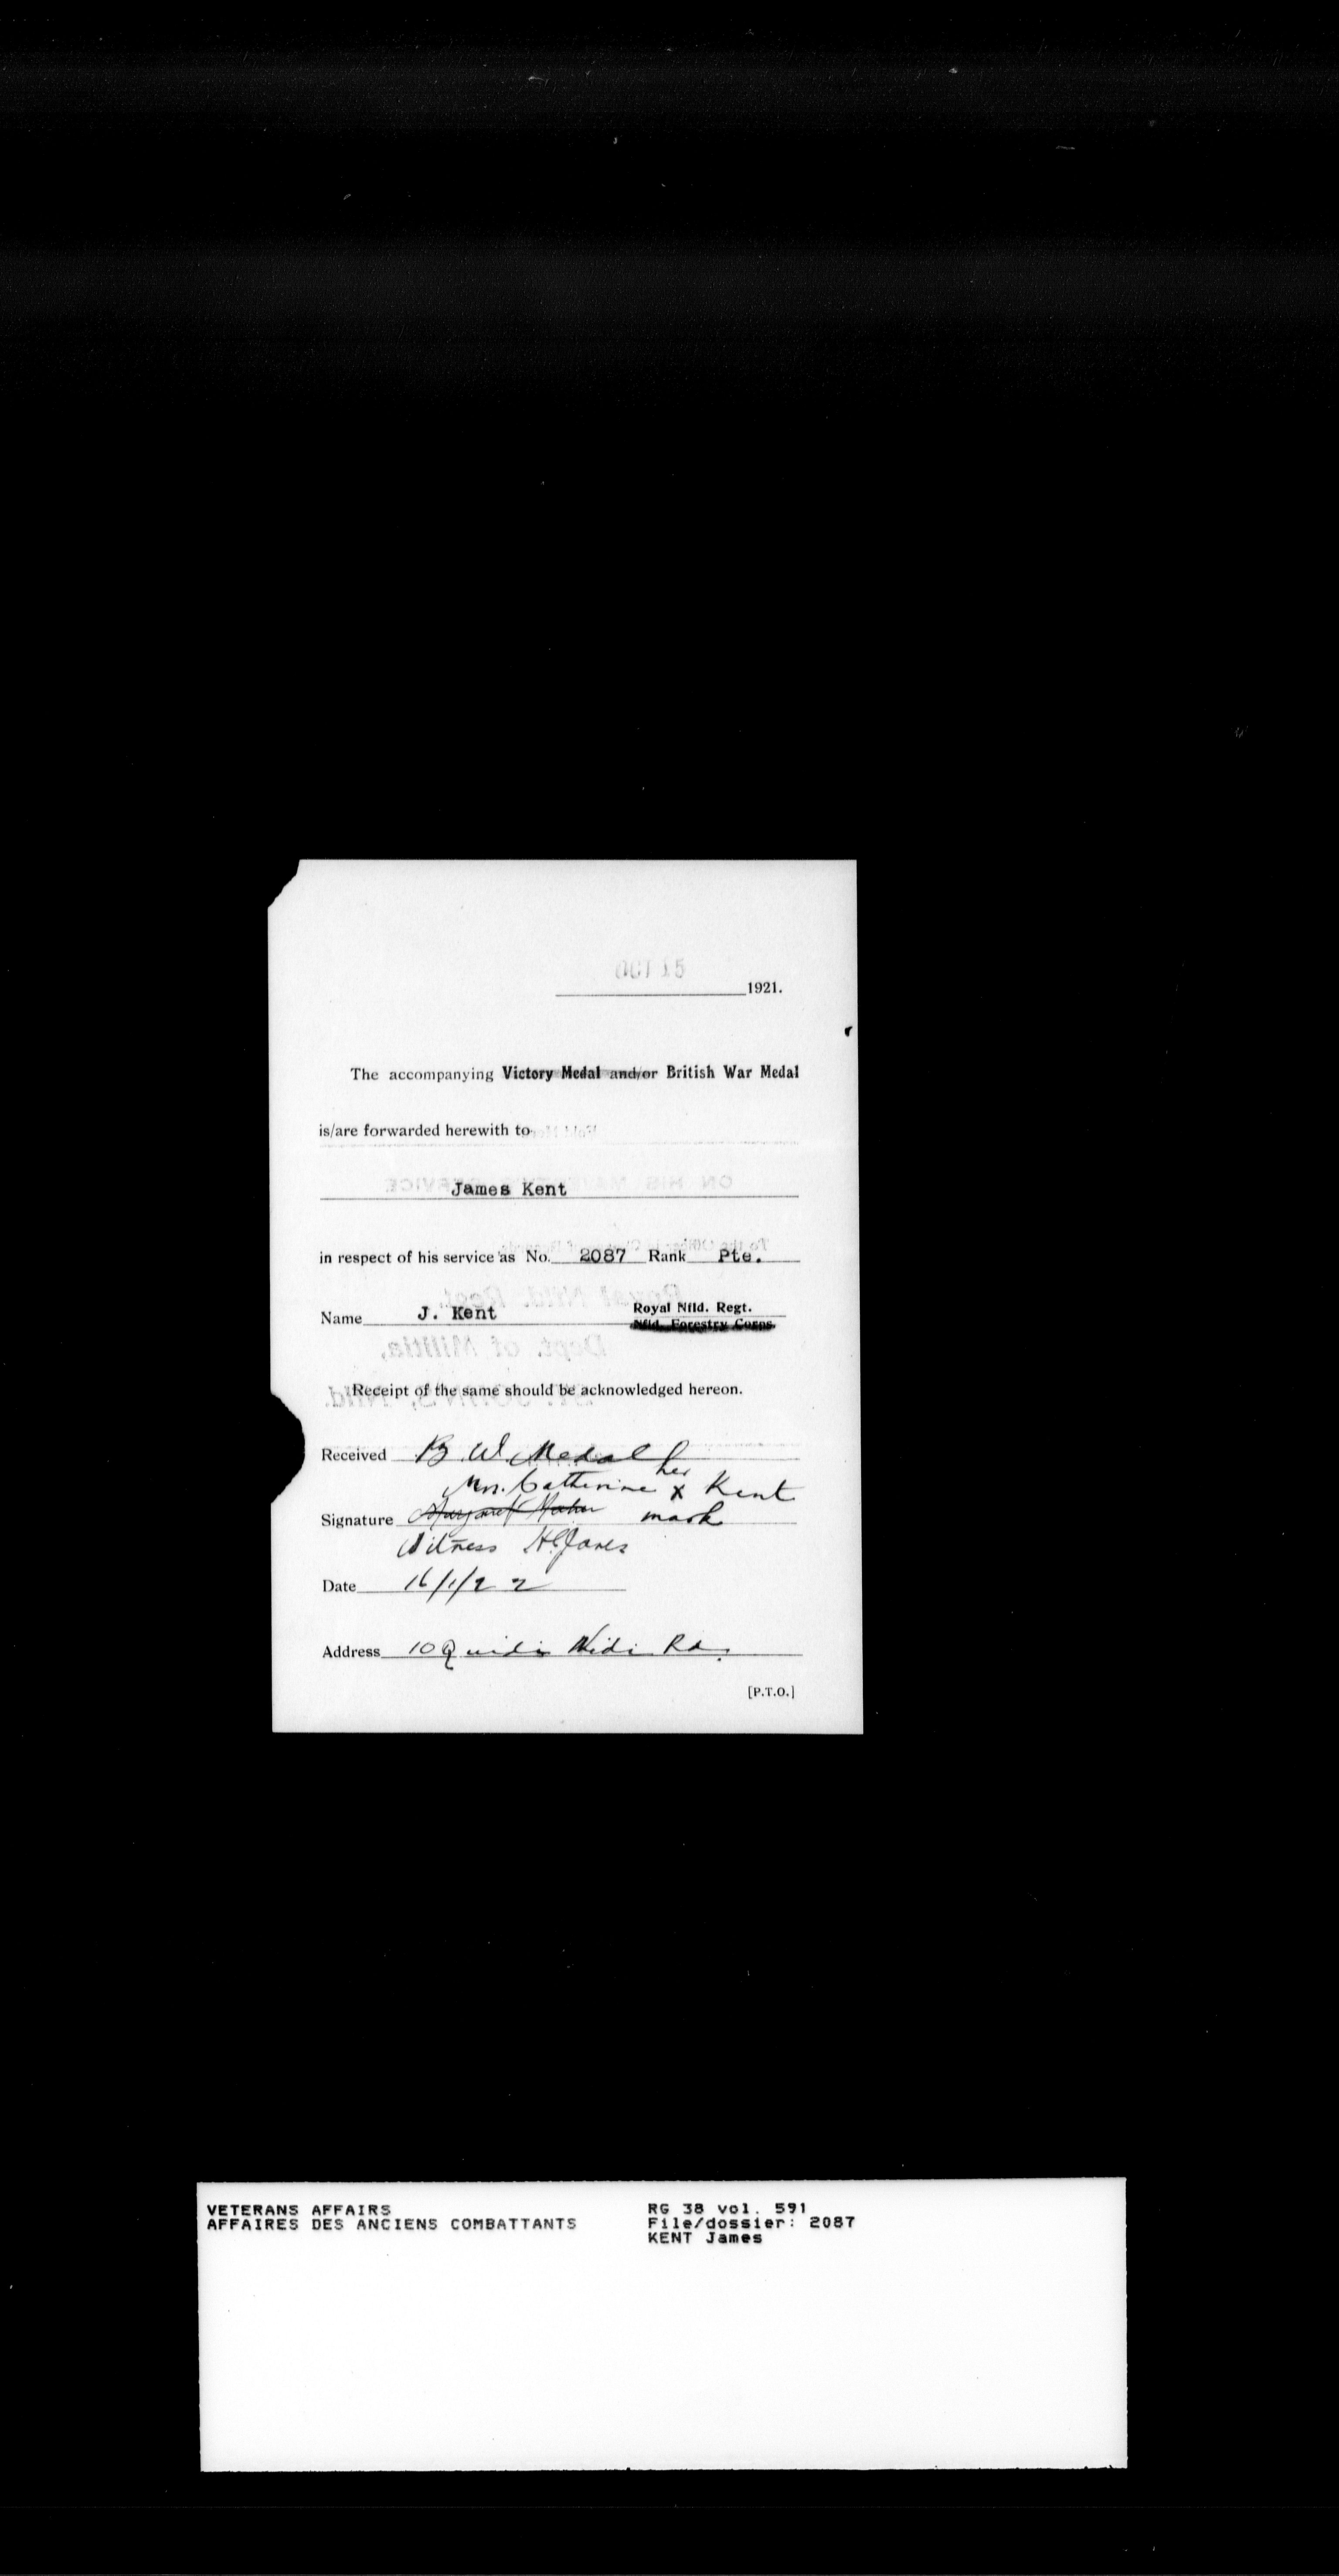 OCT 15
1921.
The accompanying Victory Medal and/or British War Medal
is/are forwarded herewith to
James Kent
in respect of his service as No. 2087 Rank Pte.
Name J. Kent Royal Nfld. Regt.
Nfld. Forestry Corps.
Receipt of the same should be acknowledged hereon.
Received B. W. Medal
her
Mrs. Catherine x Kent
Signature Margaret mark
Witness
Date 16/1/22
Address 10 Quidi Vidi Rd.
[P.T.O.]
VETERANS AFFAIRS RG 38 vol. 591
AFFAIRES DES ANCIENS COMBATTANTS File/dossier: 2087
KENT James